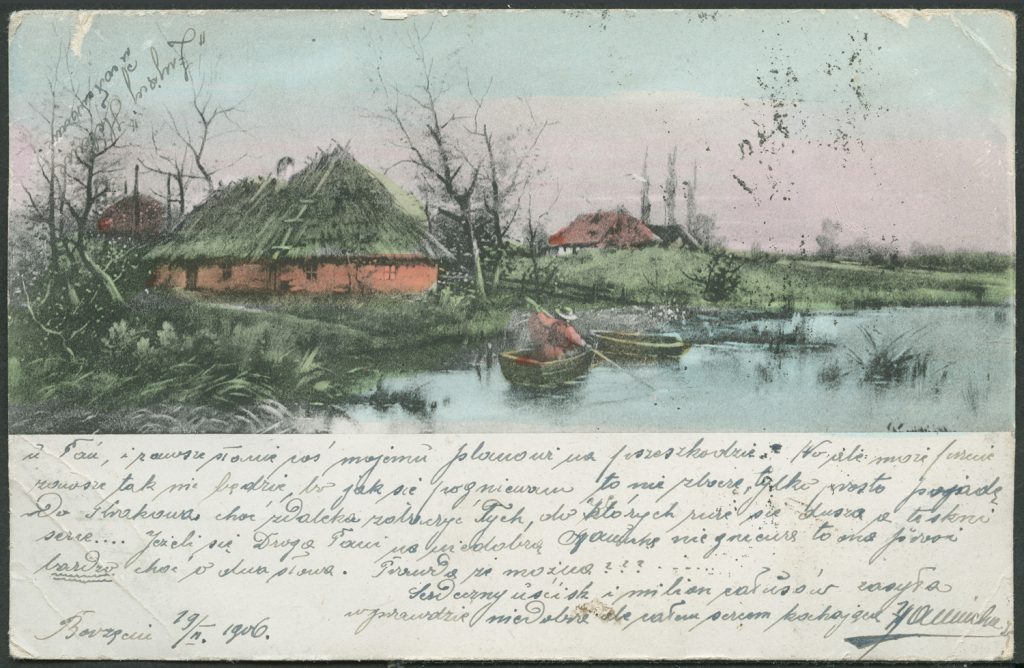 u Pań, i zawsze stanie coś mojemu planowi na przeszkodzie. No ale może
zawsze tak nie będzie, bo jak się pogniewam to nie zboczę, tylko prosto pojadę
do Krakowa choć zdaleka zobaczyć Tych, do których rwie się dusza a tęskni
serce.... Jeżeli się Droga Pani na niedobrą Janinkę nie gniewa to
bardzo choć o dwa słowa. Prawda że można???......
Serdeczny uścisk i milion całusów zasyła
wprawdzie niedobra ale całem sercem kochająca Janinka
19/II. 1906.